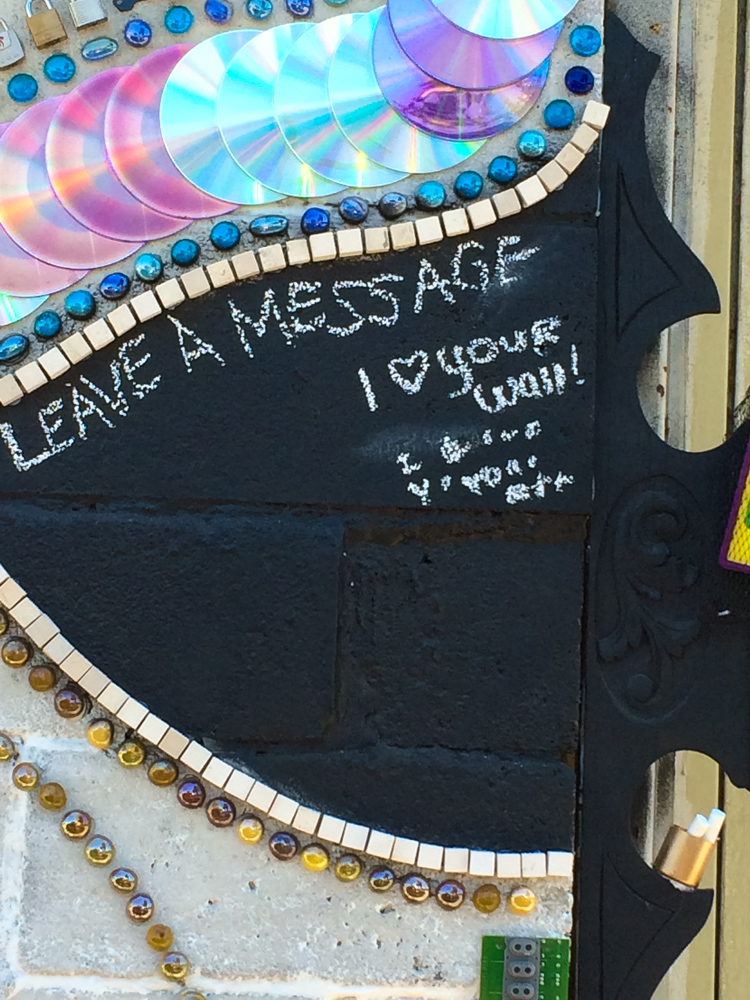 LEAVE A MESSAGE
I ♡ your
wall!
I